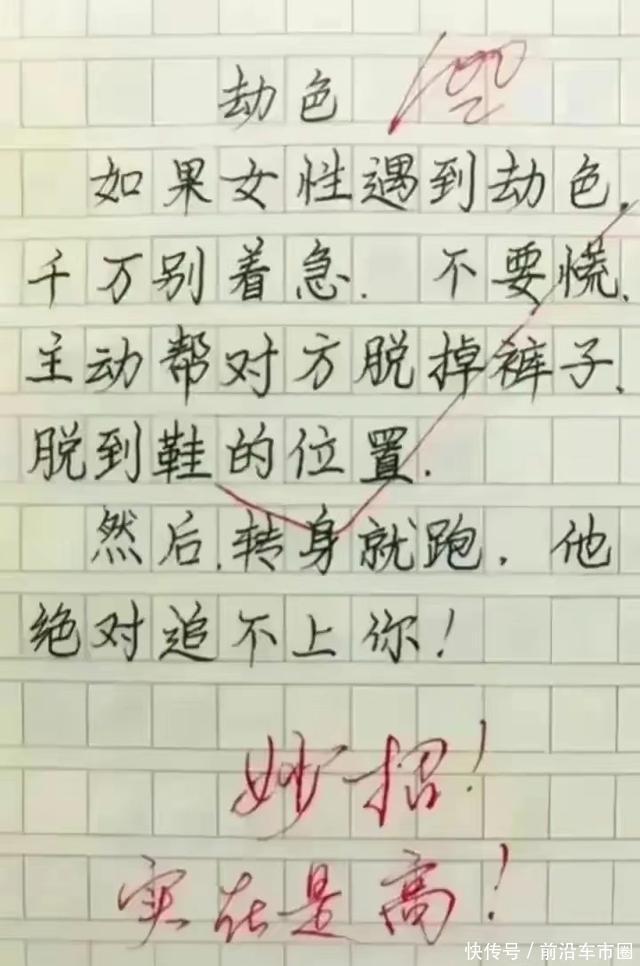 劫色
100
如果女性遇到劫色.
千万别着急. 不要慌.
主动帮对方脱掉裤子.
脱到鞋的位置.
然后.转身就跑. 他
绝对追不上你!
妙招!
实在是高!
快传号/前沿车市圈